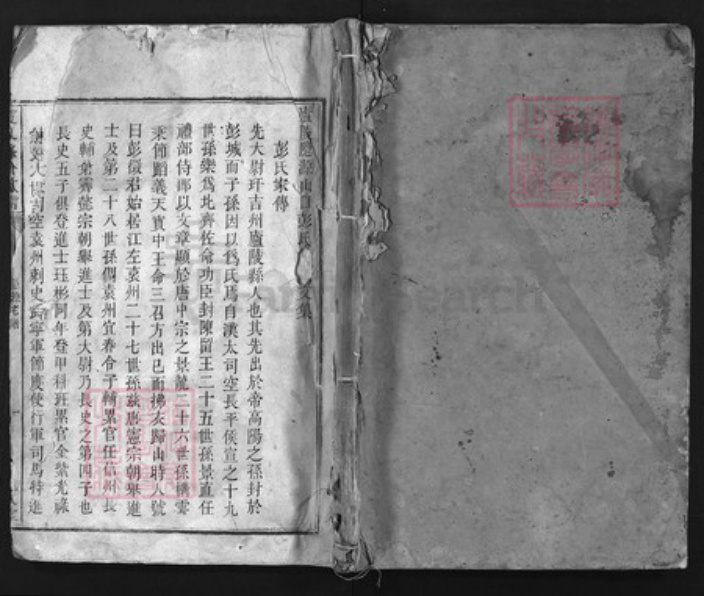 彭氏
文集
彭氏家傳
先大尉玕吉州廬陵縣人也其先出於帝高陽之孫封於
彭城而子孫因以爲氏焉自漢太司空長平侯宣之十九
世孫樂爲北齊佐命功臣封陳留王二十五世孫景直任
禮部侍郎以文章顯於唐中宗之景龍二十六世孫構雲
秉節蹈義天寶中王命三召方出已而拂衣歸山時人號
曰彭徵君始居江左袁州二十七世孫茲唐憲宗朝舉進
士及第二十八世孫倜袁州宜春令子輔累官任信州長
史輔 霽懿宗朝舉進士及第大尉乃長史之第四子也
長史五子俱登進士玨彬阿年登甲科班累官金紫光祿
大 司空袁州刺史 寧軍節度使行軍司馬特進